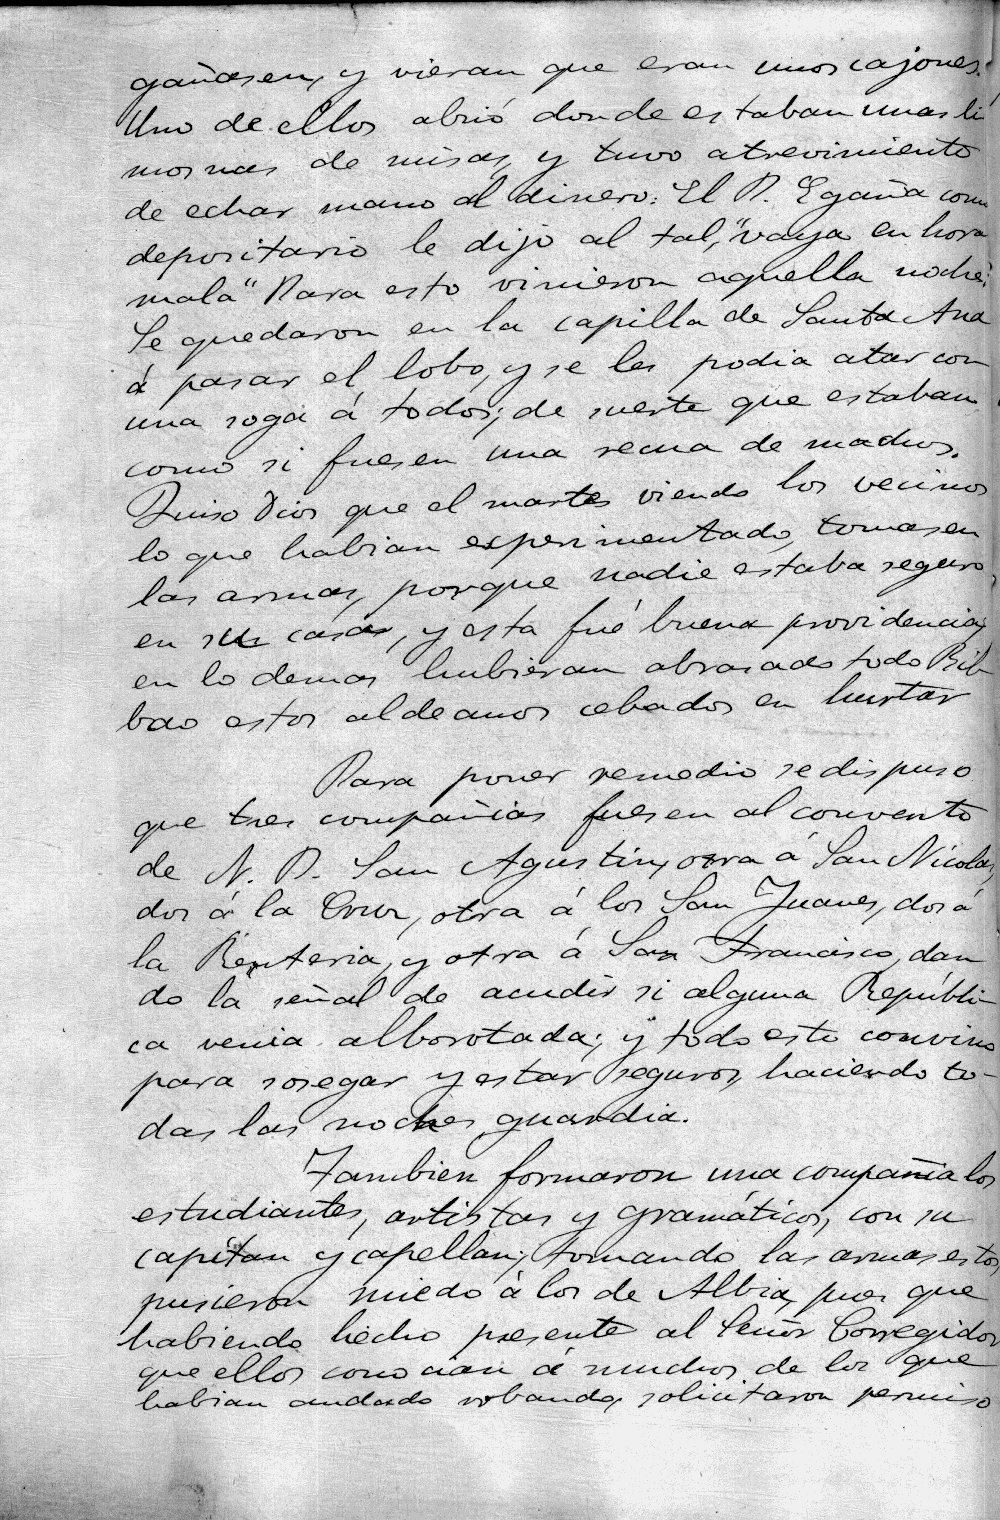 gañasen, y vieran que eran unos cajones.
Uno de ellos abrió donde estaban unas li
mosnas de misas, y tuvo atrevimiento
de echar mano al dinero: El P. Egaña como
depositario le dijo al tal, "vaya en hora
mala" Para esto vinieron aquella noche;
Se quedaron en la capilla de Santa Ana
á pasar el lobo, y se les podia atar con
una soga á todos; de suerte que estaban
como si fuesen una recua de machos.
Quiso Dios que el martes viendo los vecinos
lo que habian experimentado, tomasen
las armas, porque nadie estaba seguro
en su casa, y esta fué buena providencia,
en lo demas hubieran abrasado todo Bil
bao estos aldeanos cebados en hurtar
Para poner remedio se dispuso
que tres compañias fuesen al convento
de N. P. San Agustin, otra á San Nicolas,
dos á la Cruz, otra á los San Juanes, dos á
la Renteria, y otra á San Francisco, dan
do la señal de acudir si alguna Repúbli-
ca venia alborotada; y todo esto convino
para sosegar y estar seguros, haciendo to-
das las noches guardia.
Tambien formaron una compañia los
estudiantes, artistas y gramáticos, con su
capitan y capellan; tomando las armas estos,
pusieron miedo á los de Albia, pues que
habiendo hecho presente al Señor Corregidor
que ellos conocian á muchos de los que
habian andado robando, solicitaron permiso